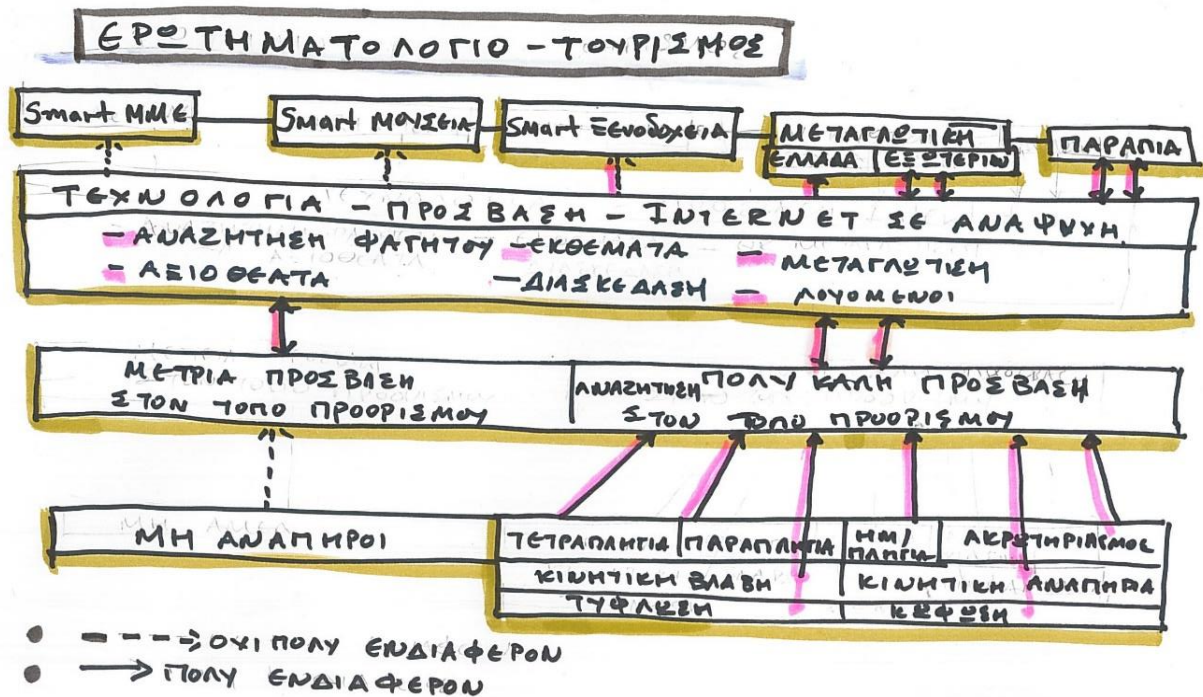 ΕΡΩΤΗΜΑΤΟΛΟΓΙΟ - ΤΟΥΡΙΣΜΟΣ
Smart ΜΜΕ
Smart ΜΟΥΣΕΙΑ
Smart ΞΕΝΟΔΟΧΕΙΑ
ΜΕΤΑΓΛΩΤΙΣΗ
ΕΛΛΑΔΑ
ΠΑΡΑΠΙΑ
ΤΕΧΝΟΛΟΓΙΑ - ΠΡΟΣΒΑΣΗ - INTERNET ΣΕ ΑΝΑΨΥΧΗ
- ΑΝΑΖΗΤΗΣΗ ΦΑΓΗΤΟΥ - ΕΚΘΕΜΑΤΑ - ΜΕΤΑΓΛΩΤΙΣΗ
- ΑΞΙΟΘΕΑΤΑ - ΔΙΑΣΚΕΔΑΣΗ - ΛΟΥΟΜΕΝΟΙ
ΜΕΤΡΙΑ ΠΡΟΣΒΑΣΗ
ΣΤΟΝ ΤΟΠΟ ΠΡΟΟΡΙΣΜΟΥ
ΑΝΑΖΗΤΗΣΗ ΠΟΛΥ ΚΑΛΗ ΠΡΟΣΒΑΣΗ
ΣΤΟΝ ΤΟΠΟ ΠΡΟΟΡΙΣΜΟΥ
ΜΗ ΑΝΑΠΗΡΟΙ
ΤΕΤΡΑΠΛΗΓΙΑ
ΠΑΡΑΠΛΗΓΙΑ
ΗΜΙ/
ΠΛΗΓΙΑ
ΑΚΡΩΤΗΡΙΑΣΜΟΣ
ΚΙΝΗΤΙΚΗ ΒΛΑΒΗ
ΚΙΝΗΤΙΚΗ ΑΝΑΠΗΡΙΑ
ΤΥΦΛΩΣΗ
ΚΩΦΩΣΗ
- - - -> ΟΧΙ ΠΟΛΥ ΕΝΔΙΑΦΕΡΟΝ
—> ΠΟΛΥ ΕΝΔΙΑΦΕΡΟΝ